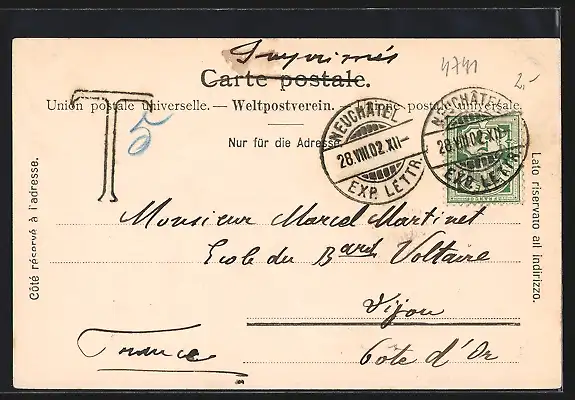 Imprimés
Carte postale.
4741
2.-
Union postale universelle. — Weltpostverein. — Unione postale universale.
T
5
Nur für die Adresse.
NEUCHÂTEL
28.VIII.02.XII-
EXP. LETTR.
NEUCHÂTEL
28.VIII.02.XII-
EXP. LETTR.
Côté réservé à l'adresse.
Lato riservato all indirizzo.
Monsieur Marcel Martinet
Ecole du Bard Voltaire
Dijon
France
Côte d'Or